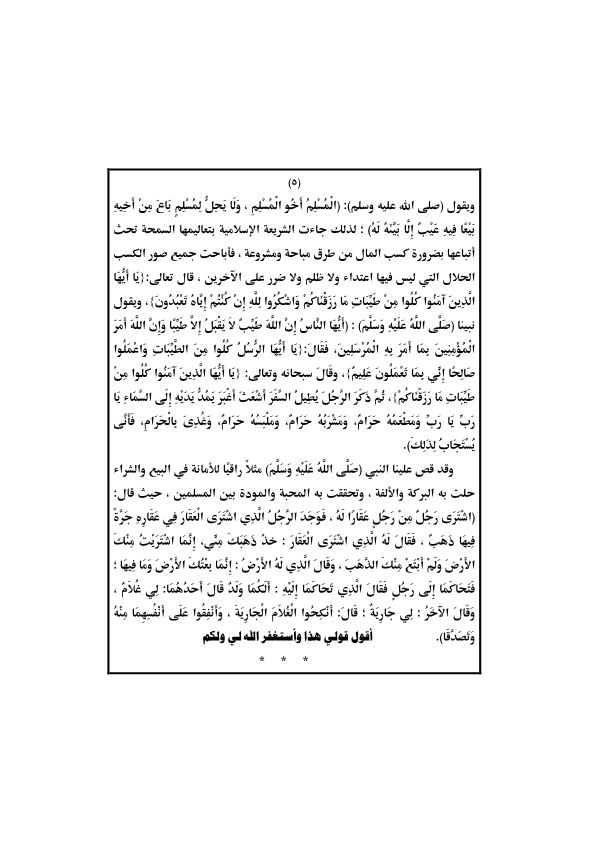 (٥)
ويقول (صلى الله عليه وسلم): (الْمُسْلِمُ أَخُو الْمُسْلِمِ ، وَلَا يَحِلُّ لِمُسْلِمٍ بَاعَ مِنْ أَخِيهِ
بَيْعًا فِيهِ عَيْبٌ إِلَّا بَيَّنَهُ لَهُ) ؛ لذلك جاءت الشريعة الإسلامية بتعاليمها السمحة تحث
أتباعها بضرورة كسب المال من طرق مباحة ومشروعة ، فأباحت جميع صور الكسب
الحلال التي ليس فيها اعتداء ولا ظلم ولا ضرر على الآخرين ، قال تعالى:{يَا أَيُّهَا
الَّذِينَ آمَنُوا كُلُوا مِنْ طَيِّبَاتِ مَا رَزَقْنَاكُمْ وَاشْكُرُوا لِلَّهِ إِنْ كُنْتُمْ إِيَّاهُ تَعْبُدُونَ}، ويقول
نبينا (صَلَّى اللَّهُ عَلَيْهِ وَسَلَّمَ) : (أَيُّهَا النَّاسُ إِنَّ اللَّهَ طَيِّبٌ لاَ يَقْبَلُ إِلاَّ طَيِّبًا وَإِنَّ اللَّهَ أَمَرَ
الْمُؤْمِنِينَ بِمَا أَمَرَ بِهِ الْمُرْسَلِينَ، فَقَالَ:{يَا أَيُّهَا الرُّسُلُ كُلُوا مِنَ الطَّيِّبَاتِ وَاعْمَلُوا
صَالِحًا إِنِّي بِمَا تَعْمَلُونَ عَلِيمٌ}، وقَالَ سبحانه وتعالى: {يَا أَيُّهَا الَّذِينَ آمَنُوا كُلُوا مِنْ
طَيِّبَاتِ مَا رَزَقْنَاكُمْ}، ثُمَّ ذَكَرَ الرَّجُلَ يُطِيلُ السَّفَرَ أَشْعَثَ أَغْبَرَ يَمُدُّ يَدَيْهِ إِلَى السَّمَاءِ يَا
رَبِّ يَا رَبِّ وَمَطْعَمُهُ حَرَامٌ، وَمَشْرَبُهُ حَرَامٌ، وَمَلْبَسُهُ حَرَامٌ، وَغُذِيَ بِالْحَرَامِ، فَأَنَّى
يُسْتَجَابُ لِذَلِكَ).
وقد قص علينا النبي (صَلَّى اللَّهُ عَلَيْهِ وَسَلَّمَ) مثلاً راقيًا للأمانة في البيع والشراء
حلت به البركة والألفة ، وتحققت به المحبة والمودة بين المسلمين ، حيث قال:
(اشْتَرَى رَجُلٌ مِنْ رَجُلٍ عَقَارًا لَهُ ، فَوَجَدَ الرَّجُلُ الَّذِي اشْتَرَى الْعَقَارَ فِي عَقَارِهِ جَرَّةً
فِيهَا ذَهَبٌ ، فَقَالَ لَهُ الَّذِي اشْتَرَى الْعَقَارَ : خذْ ذَهَبَكَ مِنِّي، إِنَّمَا اشْتَرَيْتُ مِنْكَ
الأَرْضَ وَلَمْ أَبْتَعْ مِنْكَ الذَّهَبَ ، وَقَالَ الَّذِي لَهُ الأَرْضُ : إِنَّمَا بِعْتُكَ الأَرْضَ وَمَا فِيهَا ؛
فَتَحَاكَمَا إِلَى رَجُلٍ فَقَالَ الَّذِي تَحَاكَمَا إِلَيْهِ : أَلَكُمَا وَلَدٌ قَالَ أَحَدُهُمَا: لِي غُلَامٌ ،
وَقَالَ الآخَرُ : لِي جَارِيَةٌ ؛ قَالَ: أَنْكِحُوا الْغُلَامَ الْجَارِيَةَ ، وَأَنْفِقُوا عَلَى أَنْفُسِهِمَا مِنْهُ
وَتَصَدَّقَا). أقول قولي هذا وأستغفر الله لي ولكم
* * *